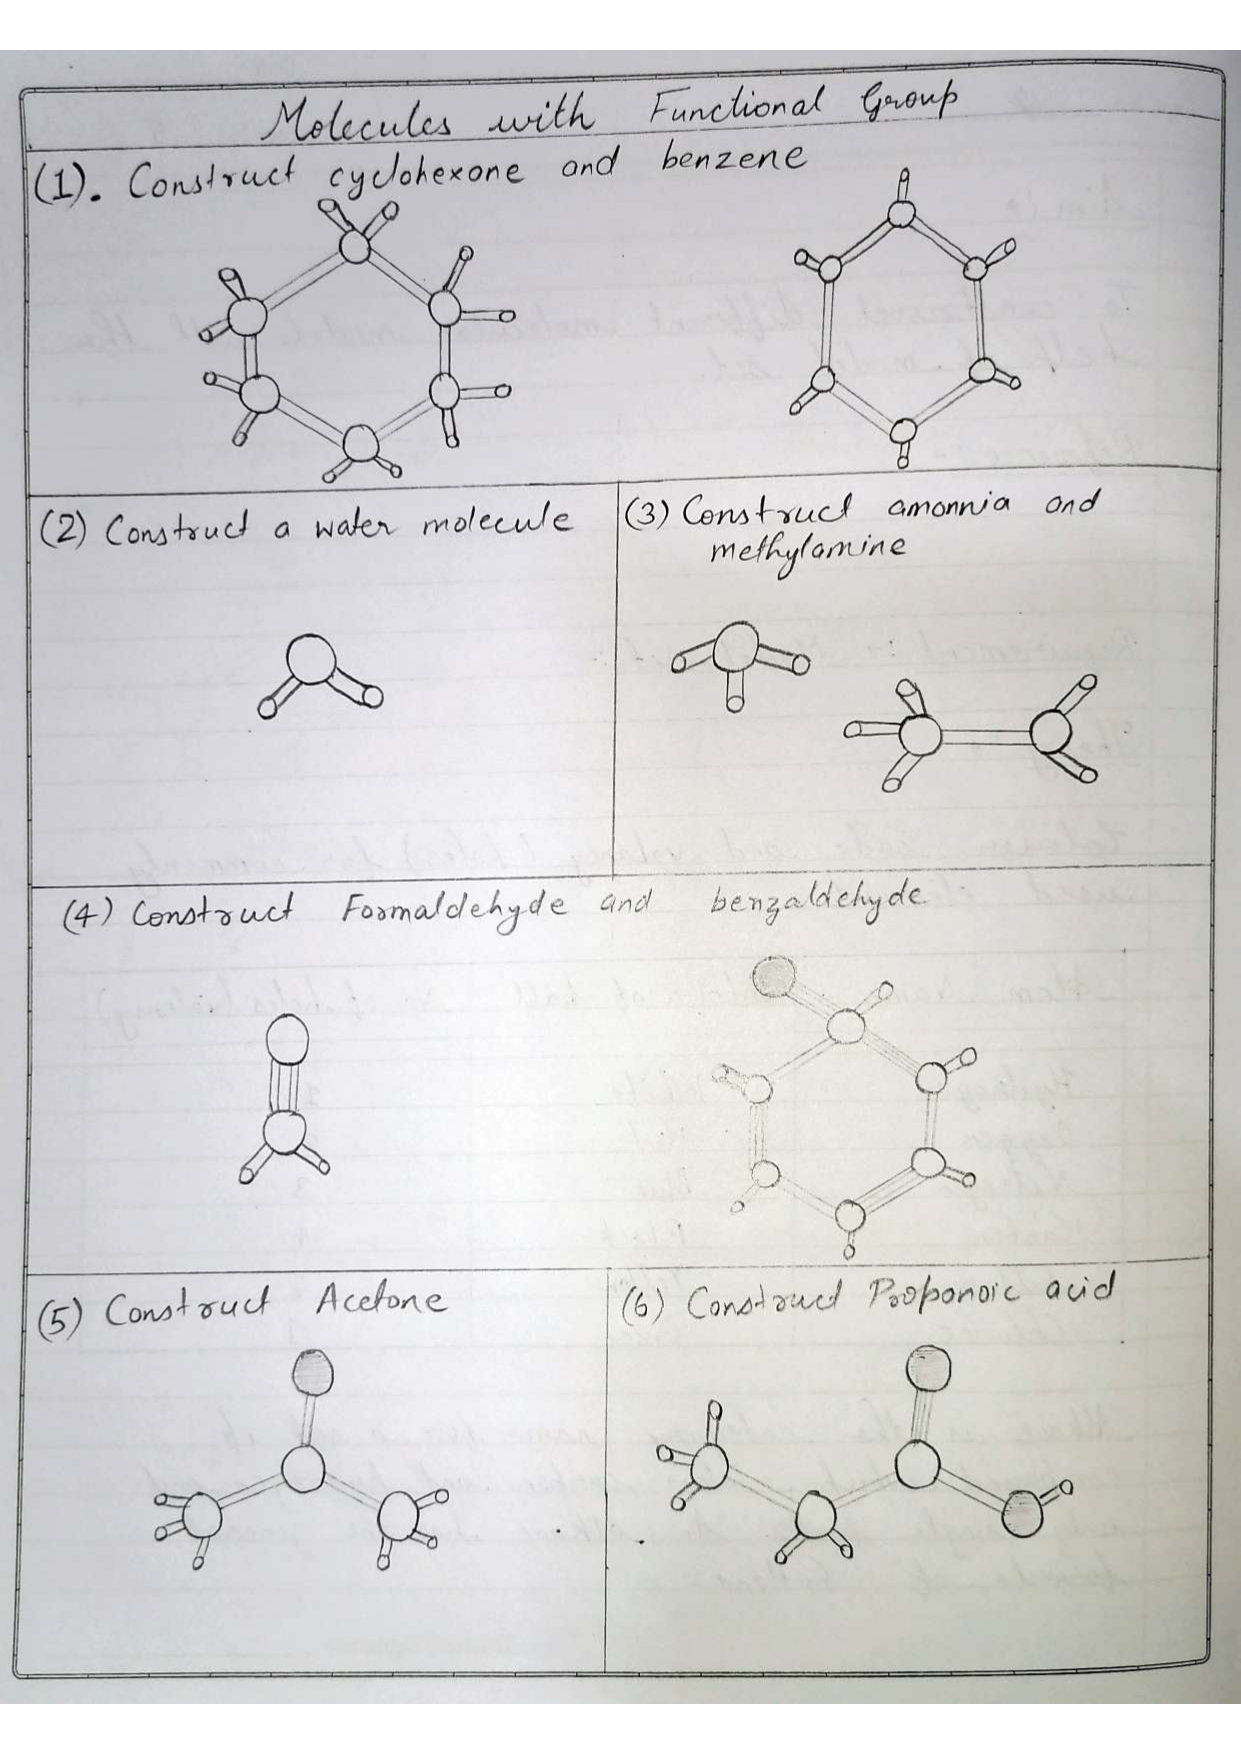 Molecules with Functional Group
(1). Construct cyclohexone and benzene
(2) Construct a water molecule
(3) Construct amonnia and
methylamine
(4) Construct Formaldehyde and benzaldehyde.
(5) Construct Acetone
(6) Construct Proponoic acid